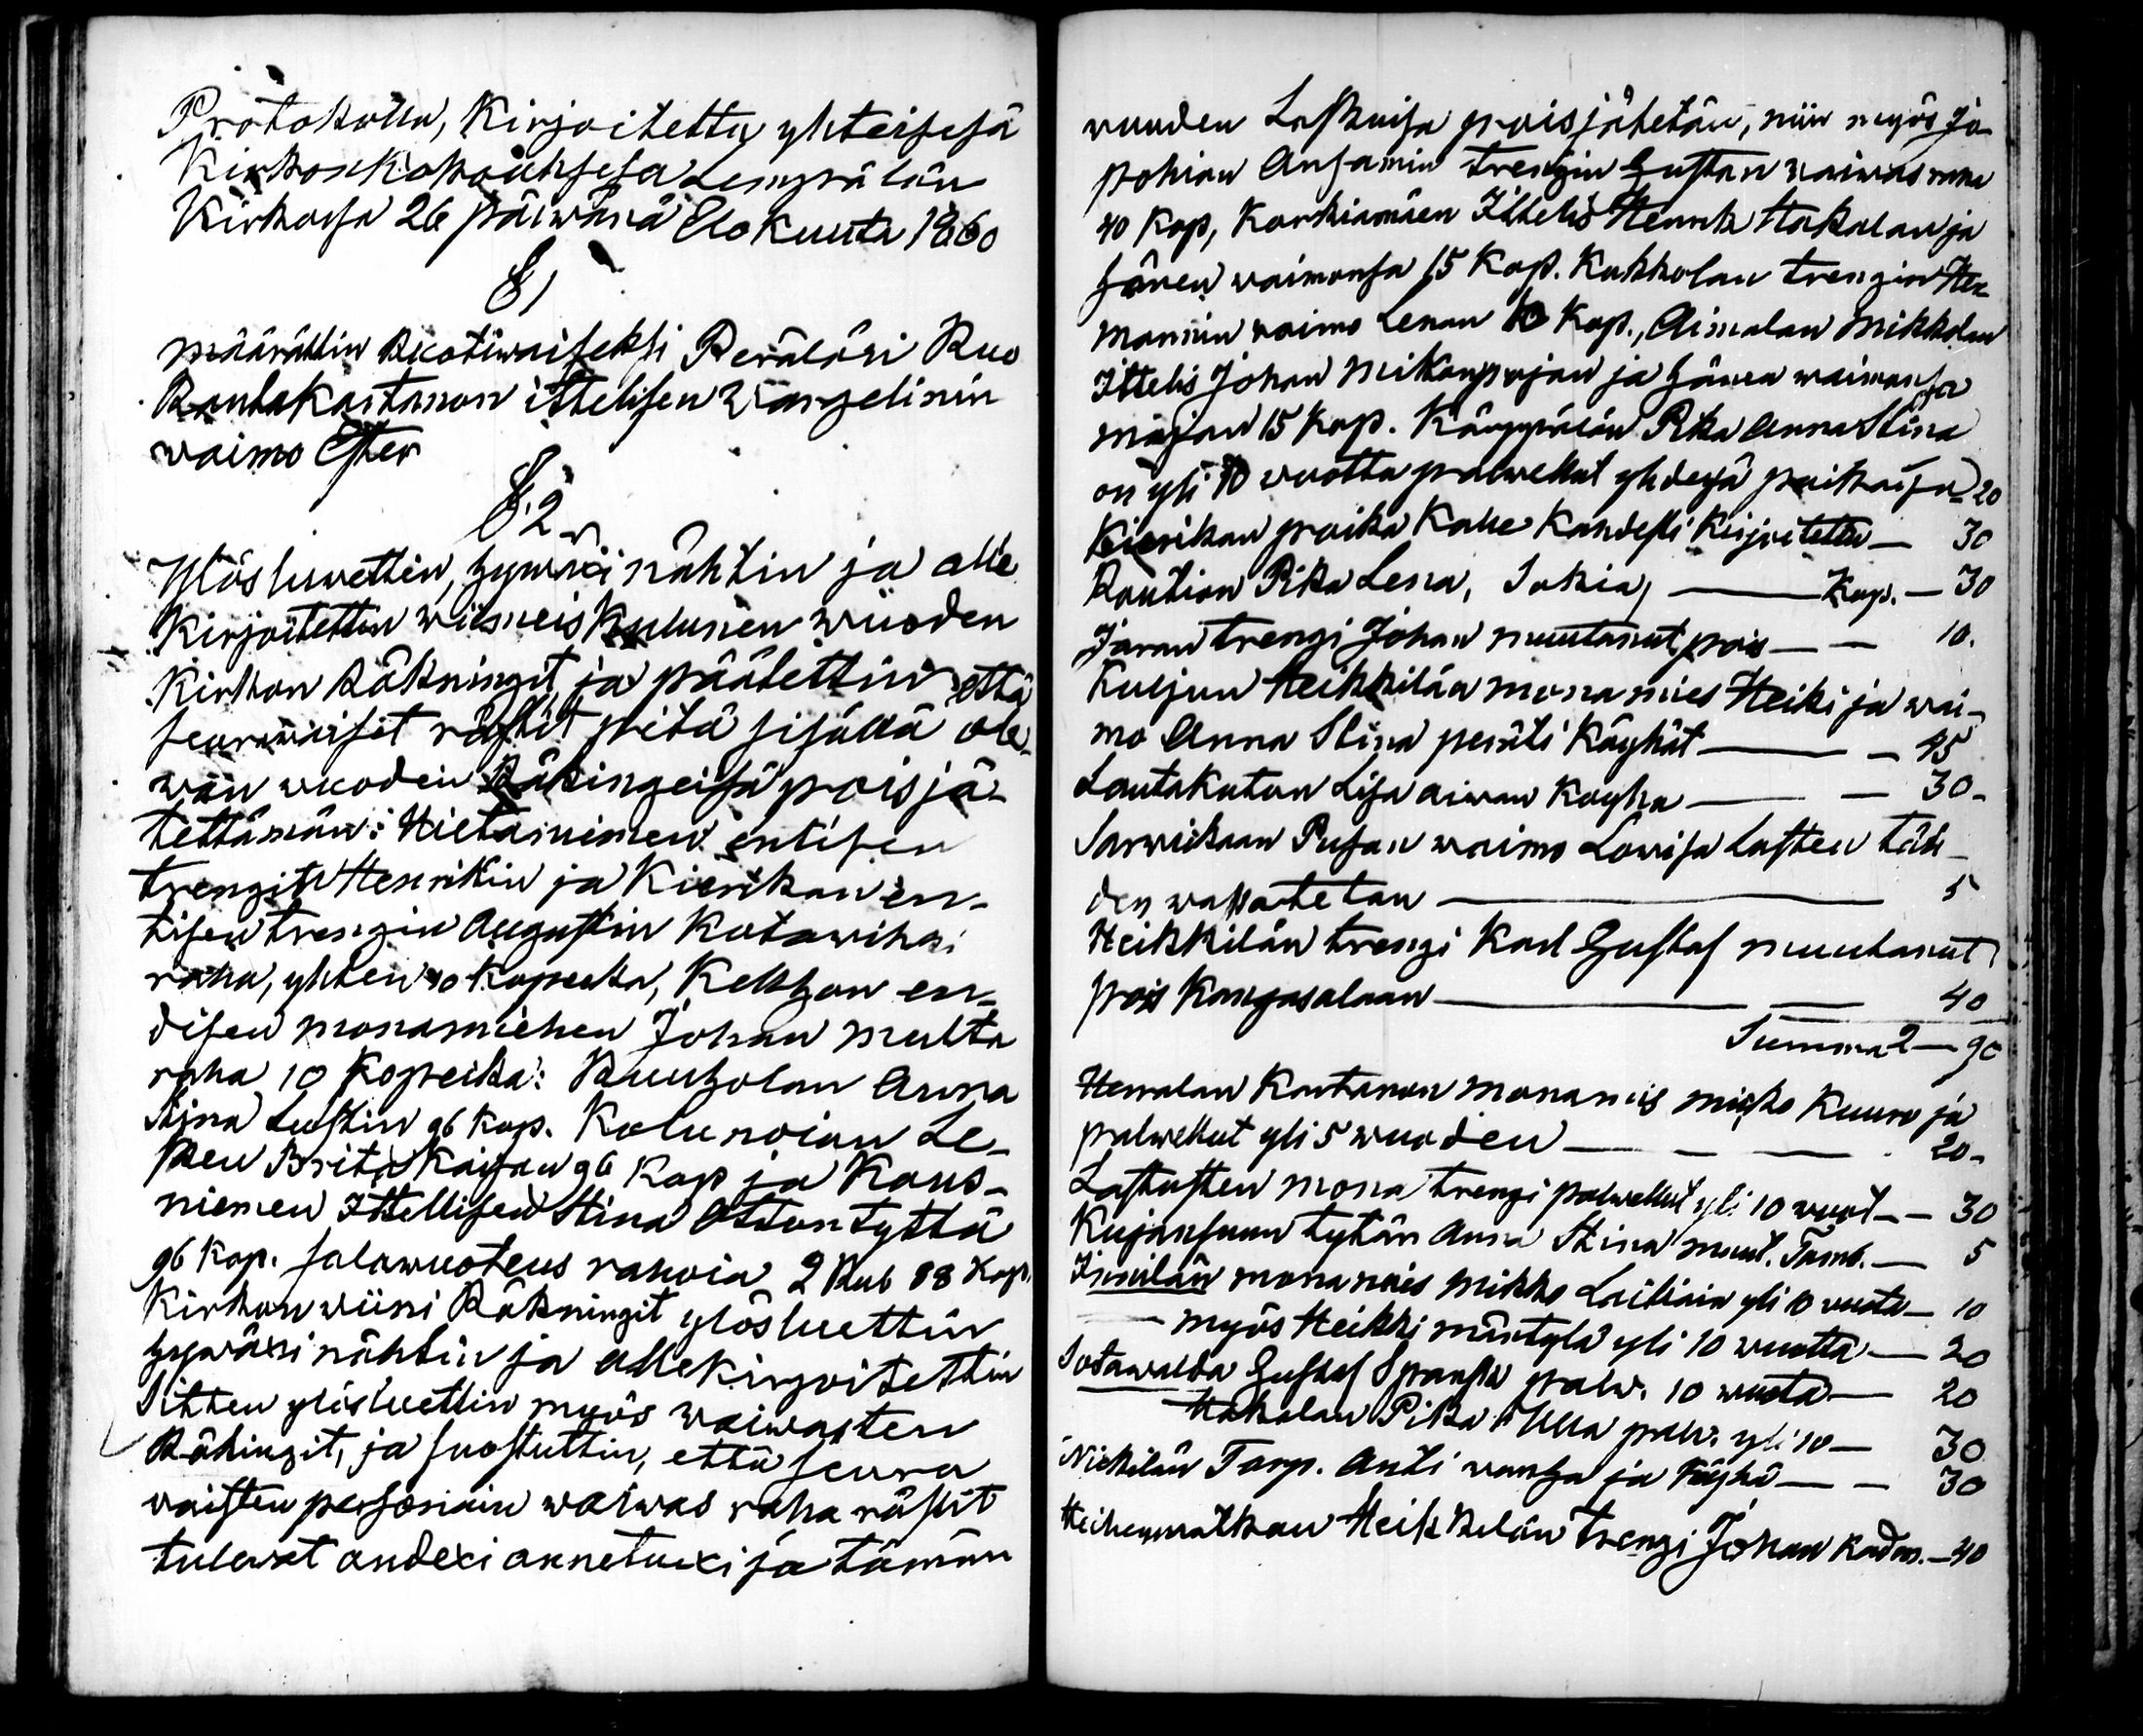 Protokolla, Kirjoitettu yhteisesä
Kirkonkokouksesa Lempäälän
Kirkosa 26 päiwänä Elokuuta 1860
§1
määrättin Ruotiwaiseksi Perälöri Ruo
Rantakartanon ittelisen Wangelinin
waimo Ester
§.2
Ylösluwettin, hywäxi nähtin ja alle
Kirjoitettin wiimeis Kulunen wuoden
Kirkon Räkningit, ja päätettiin että
seurawaiset rästit pitä sisällä ole-
wan wuoden Räkingeisä pois jä-
tettämän: Hietaniemen entisen
trengin Henrikin ja Kierikan en-
tisen trengin Augustin Kotowihai
raha, yhten 40 Kopeeka, Kekhon en-
disen monamiehen Johan multa
raha 10 Kopeika: Ruuholan Anna
Stina Lustin 96 Kop. Kolunoian Le-
sken Brita Kaisan 96 Kop ja Kaus-
niemen Ittellisen Stina Otton tyttä
96 Kop. salawuoteus rahoia 2 Rub 88 Kop.
Kirkon wiini Räkningit ylösluettiin
hywäxi nähtin ja allekirjoitettin
Sitten ylösluettin myös waiwasten
Räkingit, ja suostuttin, että seura
waisten personain waiwas raha rästit
tulewat andexi annetuxi ja tämän
wuoden Laskuisa poisjätetän, niin myös Jo-
pohian Ansamin trengin Gustan waiwas raha
40 Kop, Korkiamäen Ittelis Henrik Hakalan ja
hänen waimonsa 15 Kop. Kukkolan trengin Her
mannin waimo Lenan 10 Kop., Aimalan Mikkolan
Ittelis Johan Mikonpojan ja hänen waimonsa
majan 15 Kop. Kärppälän Pika Anna Stina
on yli 10 vuotta palwellut yhdesä paikaisa 20
Kierikan poika Kalle Kahdesti Kirjoitettu — 30
Raution Pika Lena, Sokia, — Kop. — 30
Jaran trengi Johan muutanut pois — — 10.
Kuljun Heikkilän monamies Heiki ja wai-
mo Anna Stina peräti Käyhät — — 45
Lautakaton Lisa aiwan Köyha — — 30-
Sarwikaan Pusan waimo Lowisa Lasten täh-
den wapatetan — 5
Heikkilän trengi Karl Gustaf muutanut
pois Kangasalaan — — 40
Summa 2 — 90
Herralan Kartanon monamis Kuuro ja
palwellut yli 5 wuoden — — — 20-
mona trengi palwellut yli 10 wuot — — 30
Kujansuun tytär Anna Stina muut. Tamb. — 5
Jimilän monamis Mikko Laitiain yli 10 wuota — 10
— myös Heikki mäntylä yli 10 wuotta — 20
Sotawalda Gustaf Spansk palw. 10 wuota — 20
— Hakalan Pika Ulla palw. yli 10 — 30
Nickilän Torp. Anti wanha ja Käyhä — — 30
Heikkilän trengi Johan Kados. — 40